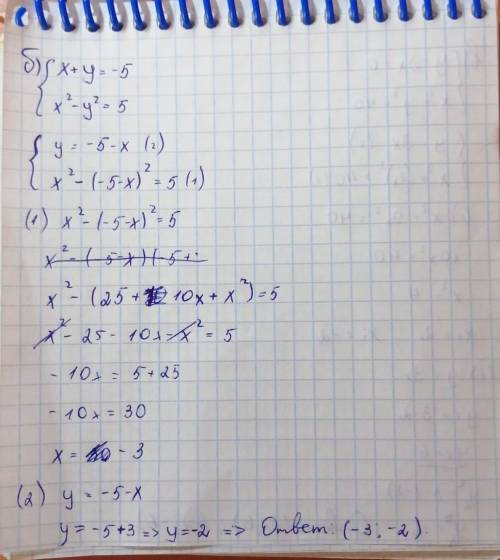 б) { x + y = -5
x² - y² = 5
{ y = -5 - x (2)
x² - (-5 - x)² = 5 (1)
(1) x² - (-5 - x)² = 5
x² - (-5 - x)(-5 +
x² - (25 + 10x + x²) = 5
x² - 25 - 10x - x² = 5
- 10x = 5 + 25
- 10x = 30
x = - 3
(2) y = -5 - x
y = -5 + 3 => y = -2 => Ответ: (-3; -2).